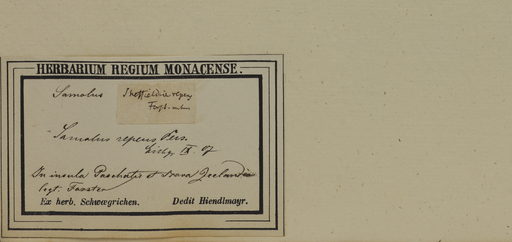 HERBARIUM REGIUM MONACENSE.
Samolus
Sheffieldia repens
Forst.
Samolus repens Pers.
IX. 07
In insula Paschatis et nova Zeelandia
legt. Forster
Ex herb. Schwœgrichen. Dedit Hiendlmayr.